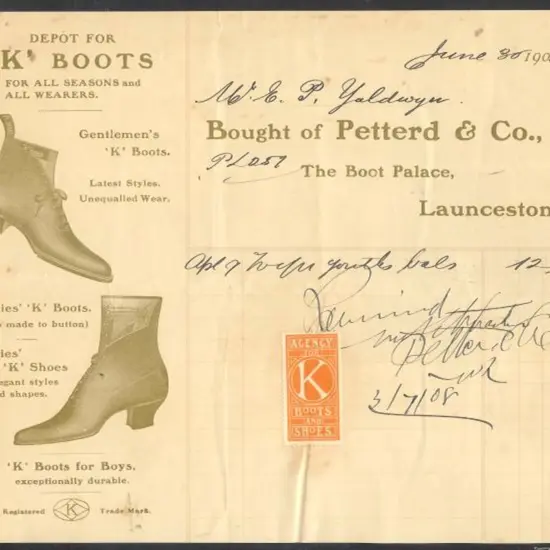 DEPOT FOR
'K' BOOTS
FOR ALL SEASONS and
ALL WEARERS.
Gentlemen's
'K' Boots.
Latest Styles.
Unequalled Wear.
ies' 'K' Boots.
made to button)
ies'
'K' Shoes
egant styles
d shapes.
'K' Boots for Boys,
exceptionally durable.
Registered K Trade Mark.
June 30 190
Mr E. P. Yaldwyn.
Bought of Petterd & Co.,
The Boot Palace,
Launceston
12
AGENCY
FOR
K
BOOTS
AND
SHOES.
Petterd
3/7/08